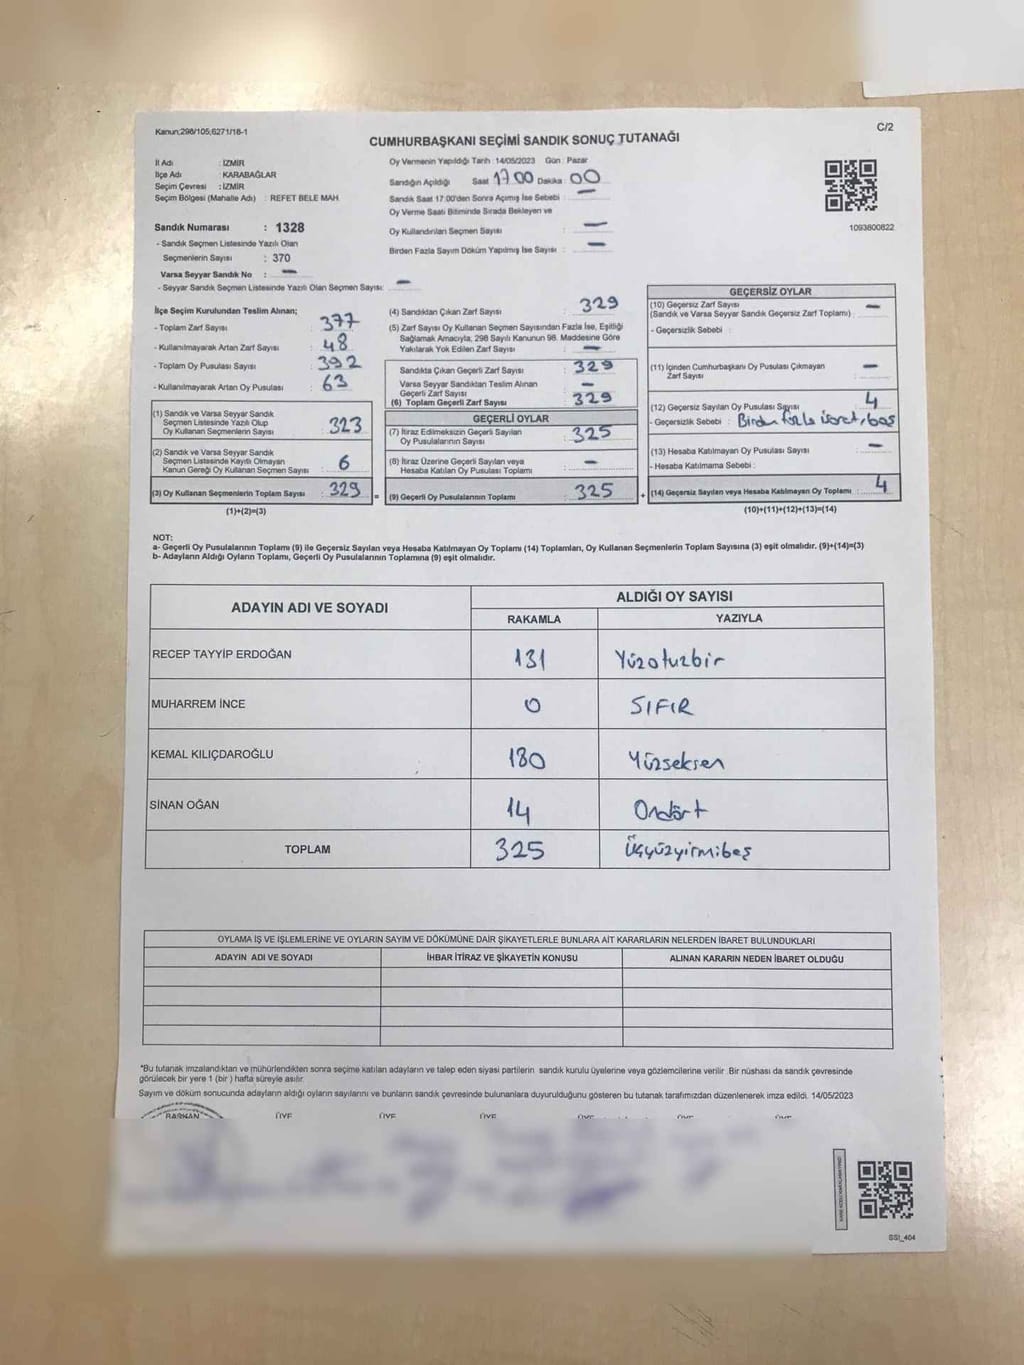 Kanun;298/105;6271/18-1
C/2
CUMHURBAŞKANI SEÇİMİ SANDIK SONUÇ TUTANAĞI
İl Adı : İZMİR
İlçe Adı : KARABAĞLAR
Seçim Çevresi : İZMİR
Seçim Bölgesi (Mahalle Adı) : REFET BELE MAH.
Sandık Numarası : 1328
- Sandık Seçmen Listesinde Yazılı Olan
Seçmenlerin Sayısı : 370
Varsa Seyyar Sandık No : —
- Seyyar Sandık Seçmen Listesinde Yazılı Olan Seçmen Sayısı: —
Oy Vermenin Yapıldığı Tarih : 14/05/2023 Gün : Pazar
Sandığın Açıldığı Saat 17:00 Dakika : 00
Sandık Saat 17:00'den Sonra Açımış İse Sebebi : —
Oy Verme Saati Bitiminde Sırada Bekleyen ve
Oy Kullandırılan Seçmen Sayısı : —
Birden Fazla Sayım Döküm Yapılmış İse Sayısı : —
1093800822
İlçe Seçim Kurulundan Teslim Alınan;
- Toplam Zarf Sayısı : 377
- Kullanılmayarak Artan Zarf Sayısı : 48
- Toplam Oy Pusulası Sayısı : 392
- Kullanılmayarak Artan Oy Pusulası : 63
(1) Sandık ve Varsa Seyyar Sandık
Seçmen Listesinde Yazılı Olup
Oy Kullanan Seçmenlerin Sayısı : 323
(2) Sandık ve Varsa Seyyar Sandık
Seçmen Listesinde Kayıtlı Olmayan
Kanun Gereği Oy Kullanan Seçmen Sayısı : 6
(3) Oy Kullanan Seçmenlerin Toplam Sayısı : 329
(1)+(2)=(3)
(4) Sandıktan Çıkan Zarf Sayısı : 329
(5) Zarf Sayısı Oy Kullanan Seçmen Sayısından Fazla İse, Eşitliği
Sağlamak Amacıyla, 298 Sayılı Kanunun 98. Maddesine Göre
Yakılarak Yok Edilen Zarf Sayısı : —
Sandıkta Çıkan Geçerli Zarf Sayısı : 329
Varsa Seyyar Sandıktan Teslim Alınan
Geçerli Zarf Sayısı : —
(6) Toplam Geçerli Zarf Sayısı : 329
GEÇERLİ OYLAR
(7) İtiraz Edilmeksizin Geçerli Sayılan
Oy Pusulalarının Sayısı : 325
(8) İtiraz Üzerine Geçerli Sayılan veya
Hesaba Katılan Oy Pusulası Toplamı : —
= (9) Geçerli Oy Pusulalarının Toplamı : 325
GEÇERSİZ OYLAR
(10) Geçersiz Zarf Sayısı
(Sandık ve Varsa Seyyar Sandık Geçersiz Zarf Toplamı) : —
- Geçersizlik Sebebi :
(11) İçinden Cumhurbaşkanı Oy Pusulası Çıkmayan
Zarf Sayısı : —
(12) Geçersiz Sayılan Oy Pusulası Sayısı : 4
- Geçersizlik Sebebi : Birden fazla işaret, boş
(13) Hesaba Katılmayan Oy Pusulası Sayısı : —
- Hesaba Katılmama Sebebi :
+ (14) Geçersiz Sayılan veya Hesaba Katılmayan Oy Toplamı : 4
(10)+(11)+(12)+(13)=(14)
NOT:
a- Geçerli Oy Pusulalarının Toplamı (9) ile Geçersiz Sayılan veya Hesaba Katılmayan Oy Toplamı (14) Toplamları, Oy Kullanan Seçmenlerin Toplam Sayısına (3) eşit olmalıdır. (9)+(14)=(3)
b- Adayların Aldığı Oyların Toplamı, Geçerli Oy Pusulalarının Toplamına (9) eşit olmalıdır.
ADAYIN ADI VE SOYADI
ALDIĞI OY SAYISI
RAKAMLA YAZIYLA
RECEP TAYYİP ERDOĞAN 131 Yüzotuzbir
MUHARREM İNCE 0 SIFIR
KEMAL KILIÇDAROĞLU 180 Yüzseksen
SİNAN OĞAN 14 Ondört
TOPLAM 325 Üçyüzyirmibeş
OYLAMA İŞ VE İŞLEMLERİNE VE OYLARIN SAYIM VE DÖKÜMÜNE DAİR ŞİKAYETLERLE BUNLARA AİT KARARLARIN NELERDEN İBARET BULUNDUKLARI
ADAYIN ADI VE SOYADI İHBAR İTİRAZ VE ŞİKAYETİN KONUSU ALINAN KARARIN NEDEN İBARET OLDUĞU
*Bu tutanak imzalandıktan ve mühürlendikten sonra seçime katılan adayların ve talep eden siyasi partilerin sandık kurulu üyelerine veya gözlemcilerine verilir. Bir nüshası da sandık çevresinde
görülecek bir yere 1 (bir ) hafta süreyle asılır.
Sayım ve döküm sonucunda adayların aldığı oyların sayılarını ve bunların sandık çevresinde bulunanlara duyurulduğunu gösteren bu tutanak tarafımızdan düzenlenerek imza edildi. 14/05/2023
BAŞKAN ÜYE ÜYE ÜYE ÜYE ÜYE ÜYE
SSI_404